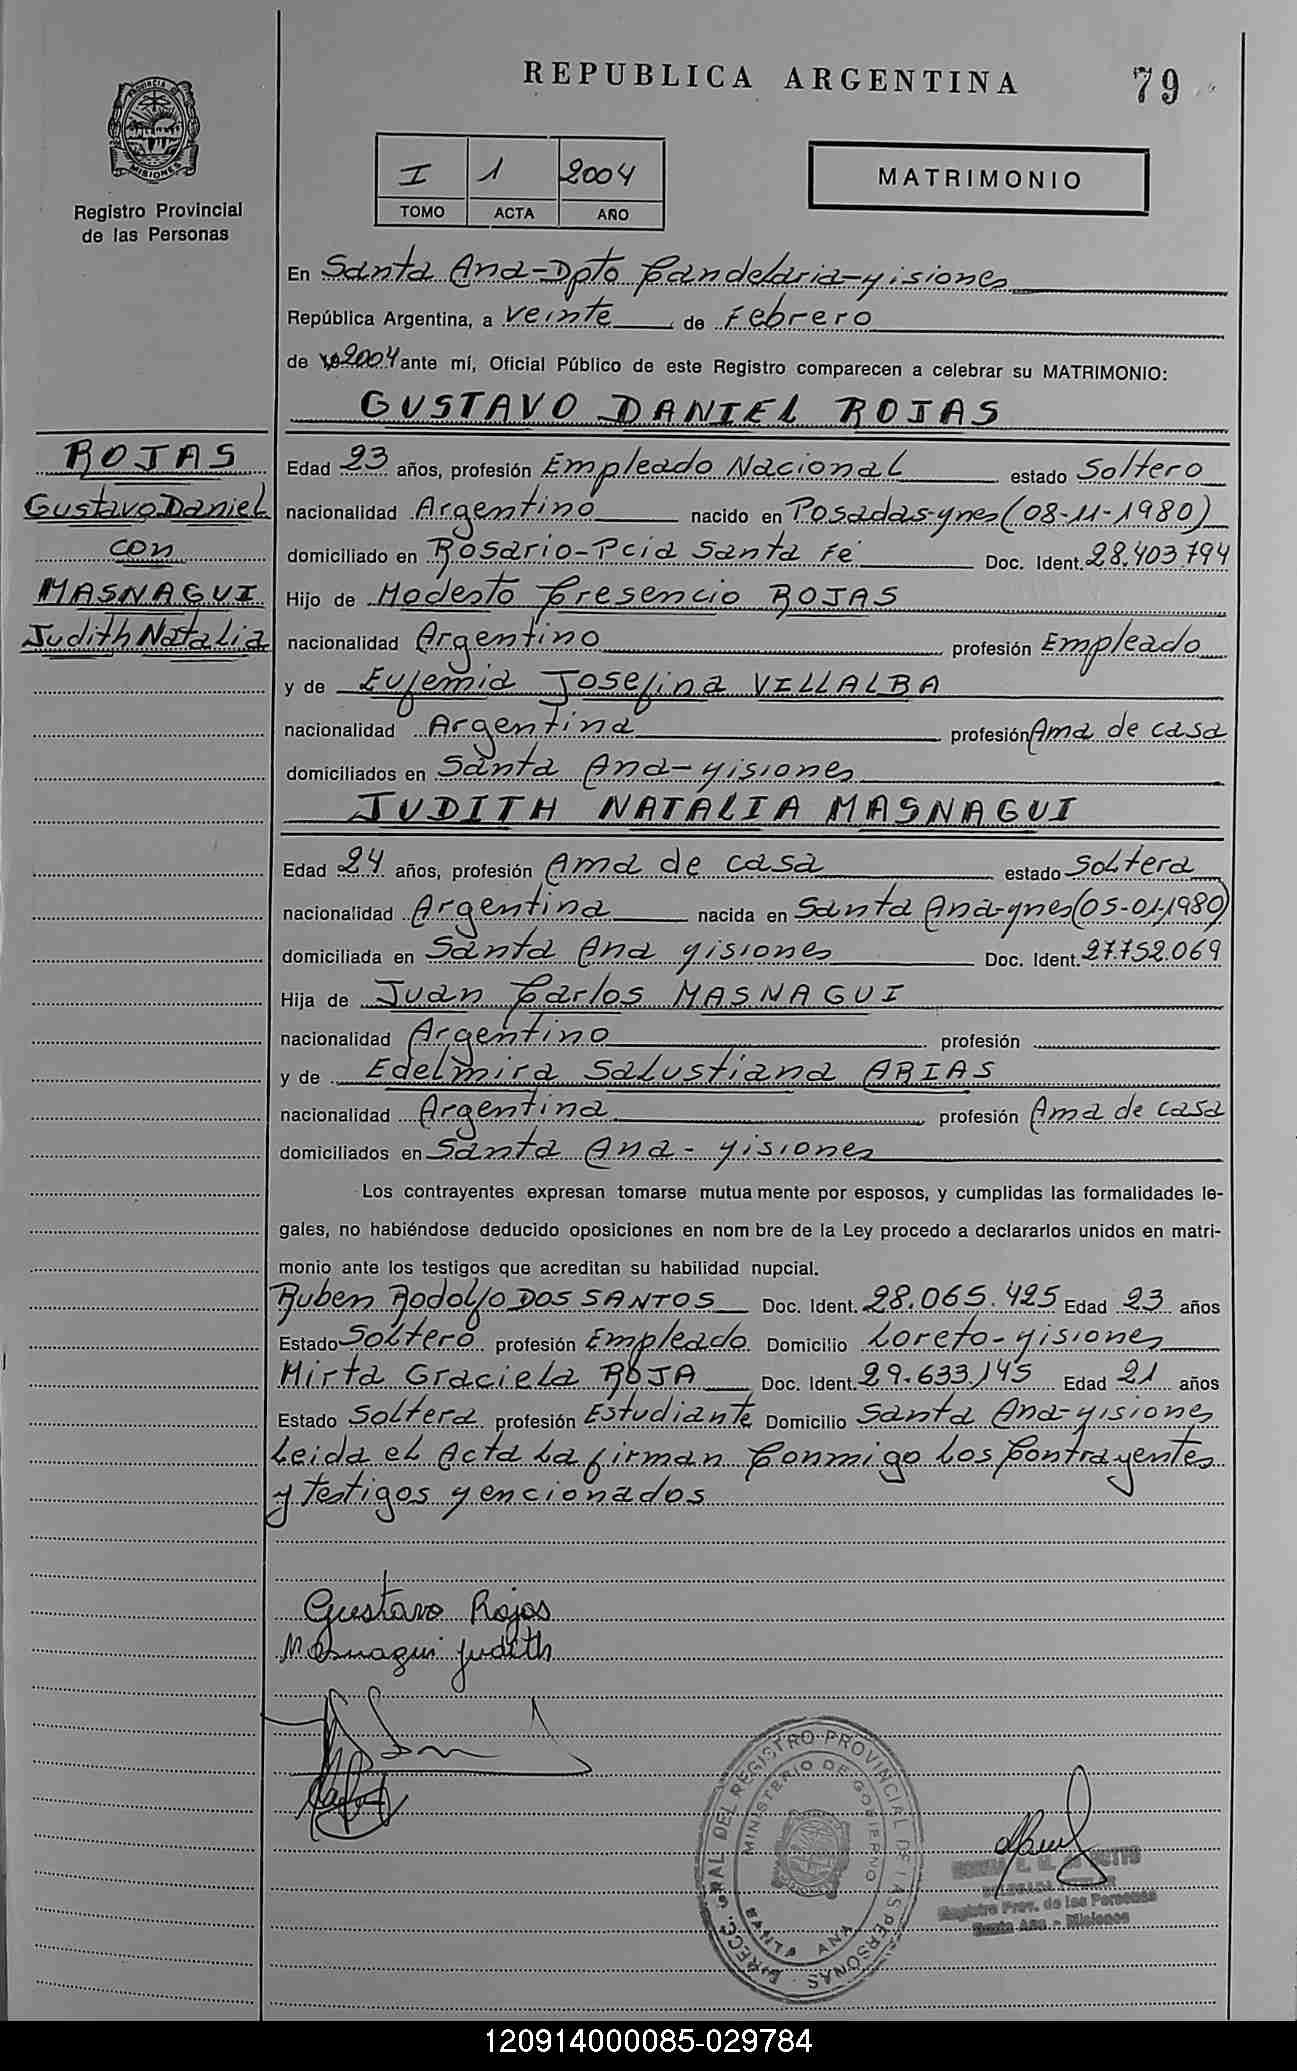 REPUBLICA ARGENTINA
79
PROVINCIA DE
MISIONES
Registro Provincial
de las Personas
I 1 2004
TOMO ACTA AÑO
MATRIMONIO
En Santa Ana-Dpto Candelaria-Misiones
República Argentina, a veinte de Febrero
de 2004 ante mí, Oficial Público de este Registro comparecen a celebrar su MATRIMONIO:
GUSTAVO DANIEL ROJAS
ROJAS
Gustavo Daniel
con
MASNAGUI
Judith Natalia
Edad 23 años, profesión Empleado Nacional estado Soltero
nacionalidad Argentino nacido en Posadas-Mnes (08-11-1980)
domiciliado en Rosario-Pcia Santa Fé Doc. Ident. 28.403.794
Hijo de Modesto Cresencio ROJAS
nacionalidad Argentino profesión Empleado
y de Eufemia Josefina VILLALBA
nacionalidad Argentina profesión Ama de casa
domiciliados en Santa Ana-Misiones
JUDITH NATALIA MASNAGUI
Edad 24 años, profesión Ama de casa estado Soltera
nacionalidad Argentina nacida en Santa Ana-Mnes (05-01-1980)
domiciliada en Santa Ana Misiones Doc. Ident. 27.752.069
Hija de Juan Carlos MASNAGUI
nacionalidad Argentino profesión
y de Edelmira Salustiana ARIAS
nacionalidad Argentina profesión Ama de casa
domiciliados en Santa Ana - Misiones
Los contrayentes expresan tomarse mutua mente por esposos, y cumplidas las formalidades le-
gales, no habiéndose deducido oposiciones en nom bre de la Ley procedo a declararlos unidos en matri-
monio ante los testigos que acreditan su habilidad nupcial.
Ruben Rodolfo DOS SANTOS Doc. Ident. 28.065.425 Edad 23 años
Estado Soltero profesión Empleado Domicilio Loreto-Misiones
Mirta Graciela ROJA Doc. Ident. 29.633.145 Edad 21 años
Estado Soltera profesión Estudiante Domicilio Santa Ana-Misiones
Leida el Acta La firman Conmigo Los Contrayentes
y Testigos Mencionados
Gustavo Rojas
Masnagui Judith
DIRECC. GRAL DEL REGISTRO PROVINCIAL DE LAS PERSONAS
MINISTERIO DE GOBIERNO
SANTA ANA
Registro Prov. de las Personas
Santa Ana - Misiones
120914000085-029784